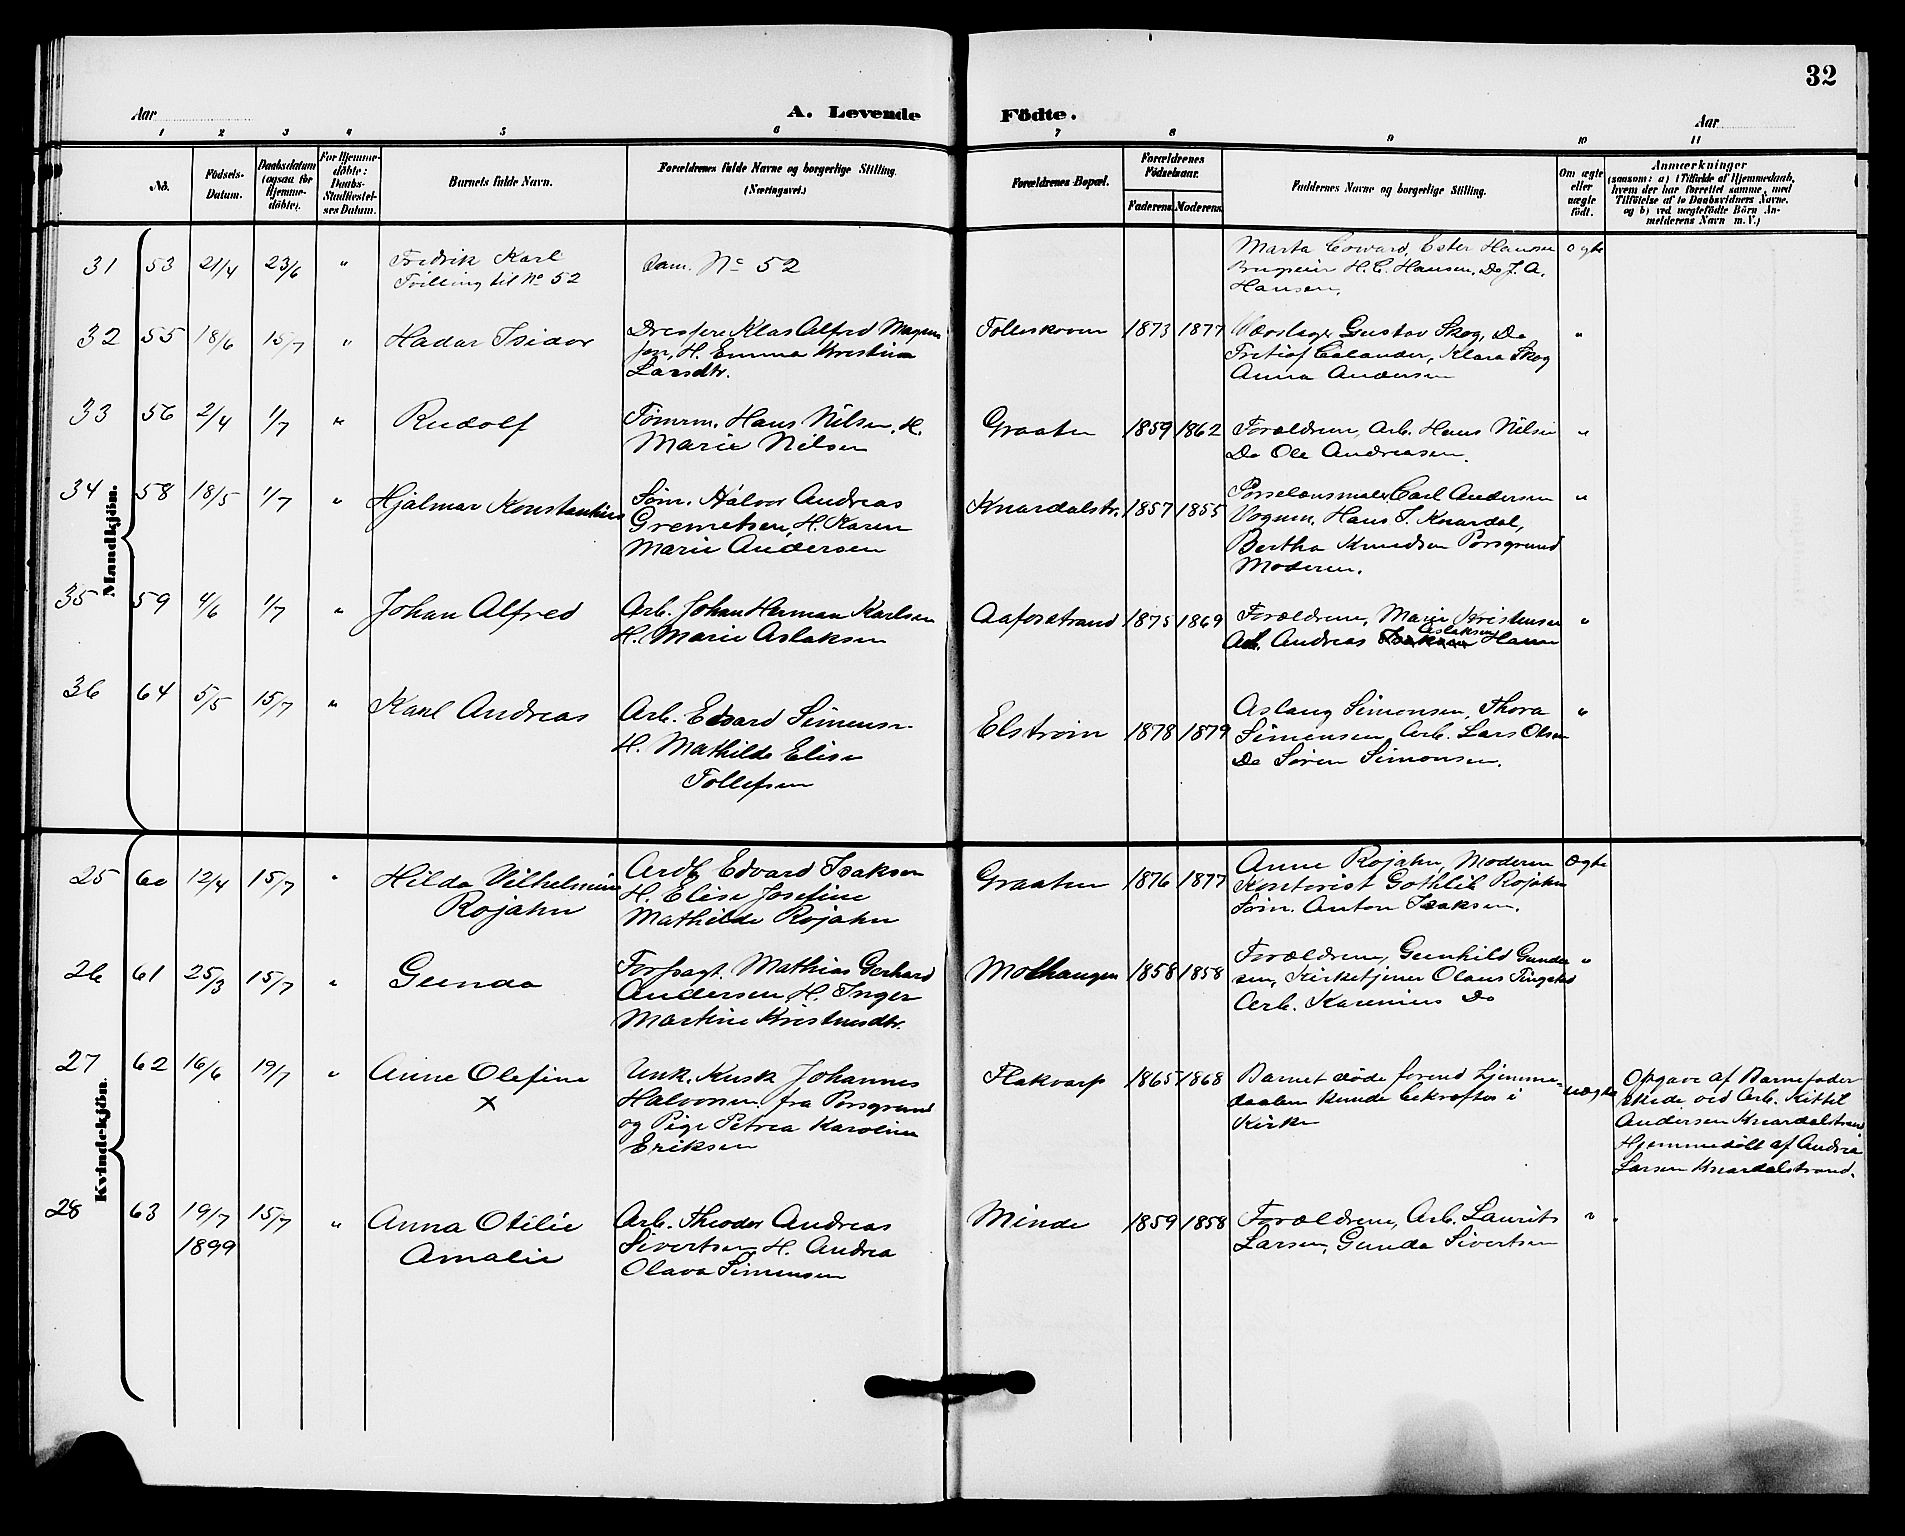 32
Aar
A. Levende
Födte.
Aar
1 2 3 4 5 6 7 8 9 10 11
No.
Födsels-
Datum.
Daabsdatum
(ogsaa for
Hjemme-
döbte).
For Hjemme-
döbte:
Daabs-
Stadfæstel-
ses Datum.
Barnets fulde Navn.
Forældrenes fulde Navne og borgerlige Stilling.
(Næringsvei.)
Forældrenes Bopæl.
Forældrenes
Födselsaar.
Faderens. Moderens.
Faddernes Navne og borgerlige Stilling.
Om ægte
eller
uægte
födt.
Anmærkninger
(saasom: a) i Tilfælde af Hjemmedaab,
hvem der har forrettet samme, med
Tilföielse af to Daabsvidners Navne,
og b) ved uægtefödte Börn An-
melderens Navn m.V.)
Mandkjön.
31 53 21/4 23/6 "
Fredrik Karl
Tvilling til No 52
Sam. No 52
Marta Coward, Ester Hansen
H. C. Hansen, Do J. A.
Hansen.
Ægte
32 55 18/6 15/7 "
Hadar Isidor
Klas Alfred Magnus
sen, H. Emma Kristina
Larsdtr.
Folleskoven 1873 1877
Gustav Skog, Do
Fretiof Calander, Klara Skog
Anna Andersen
"
33 56 2/4 1/7 "
Rudolf
Tømrm. Hans Nilsen, H.
Marie Nilsen
Graaten 1859 1862
Forældrene, Arb. Hans Nilsen
Do Ole Andreasen.
"
34 58 18/5 1/7 "
Hjalmar Konstantius
Søm. Halvor Andreas
Gremetsen, H. Karen
Marie Andersen
Knardalstr. 1857 1855
Porselænsmaler Carl Andersen
Vognm. Hans J. Knardal,
Bertha Knudsen Porsgrund
Moderen.
"
35 59 4/6 1/7 "
Johan Alfred
Arb. Johan Herman Karlsen
H. Marie Aslaksen
Aaforstrand 1875 1869
Forældrene, Marie Kristensen
Aslaksen
Arb. Andreas Isaksen Hanna
"
36 64 5/5 15/7 "
Karl Andreas
Arb. Edvard Simensen
H. Mathilde Elise
Tollefsen
Elstrøm 1878 1879
Aslaug Simonsen, Thora
Simensen, Arb. Lars Olsen
Do Søren Simonsen.
"
Kvindekjön.
25 60 12/4 15/7 "
Hilda Vilhelmine
Rojahn
Edvard Isaksen
H. Elise Josefine
Mathilde Rojahn
Graaten 1876 1877
Anne Rojahn, Moderen
Gothlib Rojahn
Søm. Anton Isaksen.
Ægte
26 61 25/3 15/7 "
Gunda
Forpagt. Mathias Gerhard
Andersen H. Inger
Martine Kristensdtr.
Molhaugen 1858 1858
Forældrene, Gunhild Gunder
sen, Kirketjener Olaus Tingstad
Arb. Karenius Do
"
27 62 16/6 19/7 "
Anne Olefine
x
Unk. Kusk Johannes
Halvorsen fra Porsgrund
og Pige Petrea Karoline
Eriksen
Flakvarp 1865 1868
Barnet døde forend hjemme-
daaben kunde bekræftes i
Kirke
uægte
Opgave af Barnefader
skede ved Arb. Kittil
Andersen Knardalstrand
Hjemmedøbt af Andrea
Larsen Knardalstrand.
28 63 19/7 15/7 "
1899
Anna Otilie
Amalie
Arb. Theodor Andreas
Sivertsen H. Andrea
Olava Simensen
Minde 1859 1858
Forældrene, Arb. Laurits
Larsen, Gunda Sivertsen
"